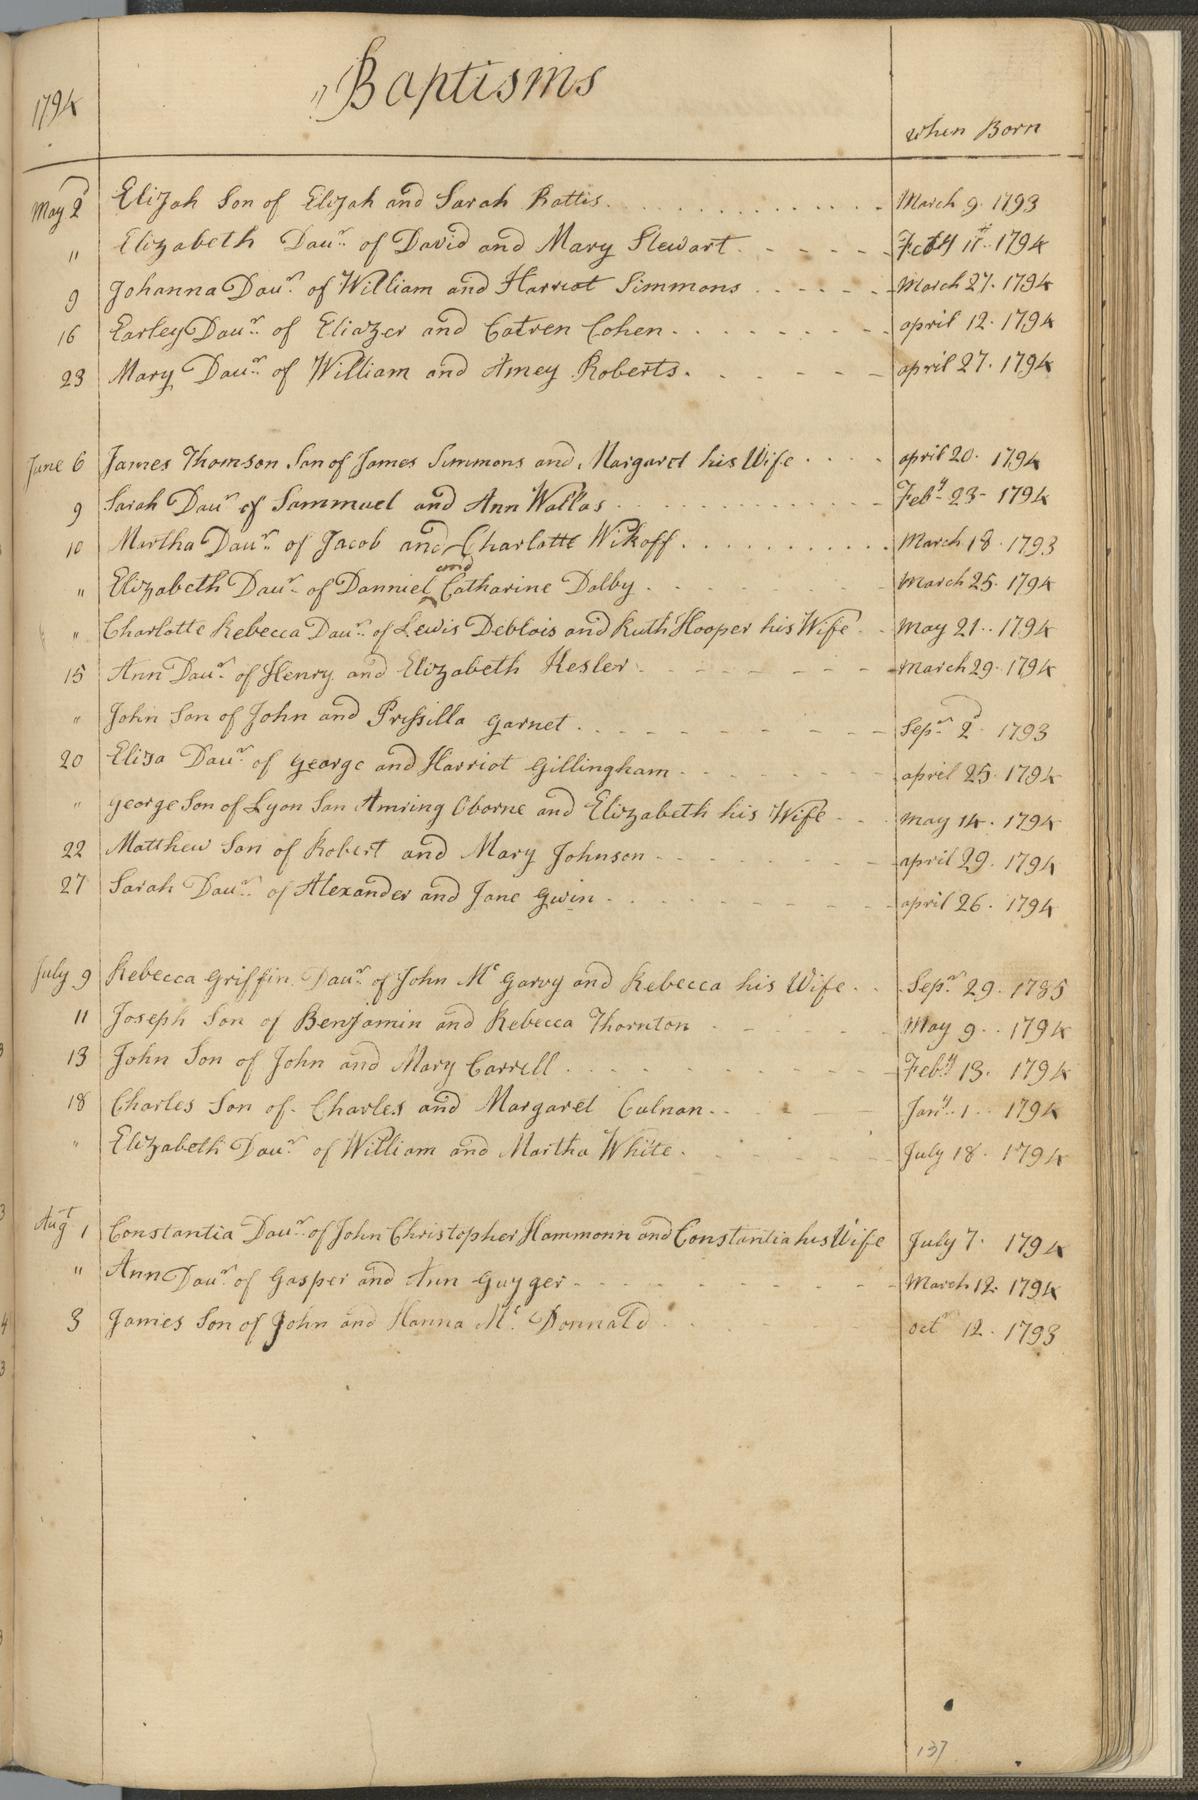 1794
"Baptisms
when Born
May 2d Elijah Son of Elijah and Sarah Rattis. March 9. 1793
" Elizabeth Daur. of David and Mary Stewart 1794
9 Johanna Daur. of William and Harriot Simmons March 27. 1794
16 Earley Daur. of Eliazer and Catren Cohen. april 12. 1794
23 Mary Daur. of William and Amey Roberts. april 27. 1794
June 6 James Thomson Son of James Simmons and Margaret his Wife april 20. 1794
9 Sarah Daur of Sammuel and Ann Wallas Feby. 23 - 1794
10 Martha Daur. of Jacob and Charlotte Wikoff. March 18. 1793
" Elizabeth Daur. of Danniel and Catharine Dolby. March 25. 1794
" Charlotte Rebecca Daur. of Lewis Deblois and Ruth Hooper his Wife. May 21. 1794
15 Ann Daur. of Henry and Elizabeth Kesler March 29. 1794
" John Son of John and Prissilla Garnet. Sepr. 2d. 1793
20 Eliza Daur. of George and Harriot Gillingham april 25. 1794
" George Son of Lyon San Amring Oborne and Elizabeth his Wife May 14. 1794
22 Matthew Son of Robert and Mary Johnson april 29. 1794
27 Sarah Daur. of Alexander and Jane Gwin april 26. 1794
July 9 Rebecca Griffin Daur. of John Mc Garvy and Rebecca his Wife. Sepr. 29. 1785
11 Joseph Son of Benjamin and Rebecca Thornton May 9. 1794
13 John Son of John and Mary Carrell. Feby. 13. 1794
18 Charles Son of Charles and Margaret Culnan. Jany. 1. 1794
" Elizabeth Daur. of William and Martha White. July 18. 1794
Augt 1 Constantia Daur. of John Christopher Hammonn and Constantia his Wife July 7. 1794
" Ann Daur. of Gasper and Ann Guyger March 12. 1794
3 James Son of John and Hanna Mc. Donnald Octr 12. 1793
137